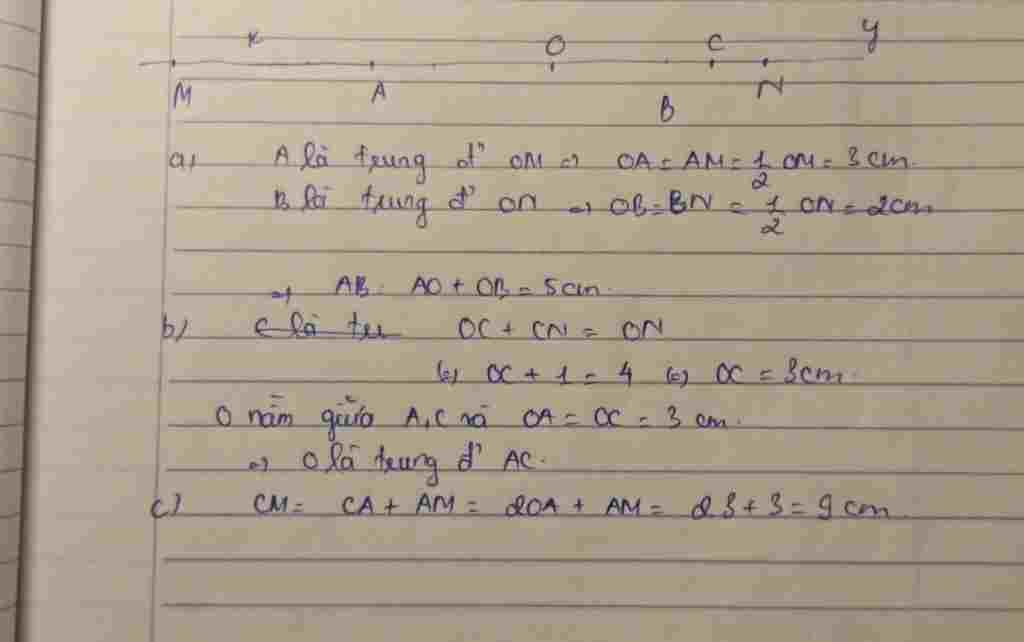 x O C y
M A B N
a) A là trung đ' OM => OA = AM = 1/2 OM = 3 cm.
B là trung đ' ON => OB = BN = 1/2 ON = 2cm
=> AB = AO + OB = 5cm.
b) C là tu OC + CN = ON
(=) OC + 1 = 4 (=) OC = 3cm.
O nằm giữa A, C mà OA = OC = 3 cm.
=> O là trung đ' AC.
c) CM = CA + AM = 2OA + AM = 2.3 + 3 = 9 cm